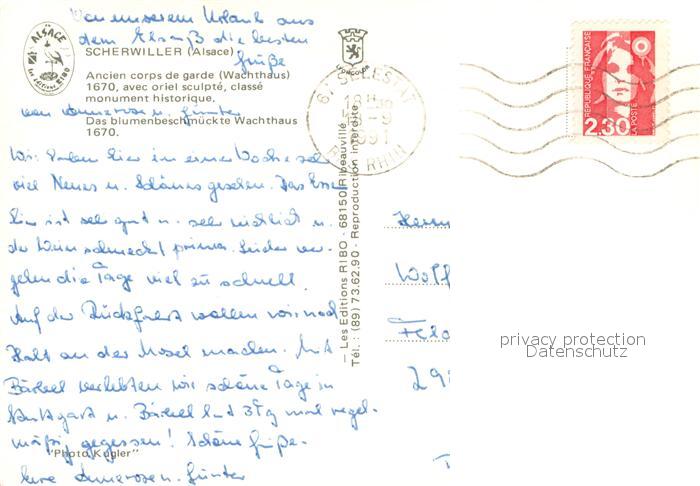 Von unserem Urlaub aus
dem Elsaß die besten
Grüße
ALSACE
Les Editions RIBO
SCHERWILLER (Alsace)
Ancien corps de garde (Wachthaus)
1670, avec oriel sculpté, classé
monument historique.
von Annerose u. Günter
Das blumenbeschmückte Wachthaus
1670.
Wir haben hier in einer Woche sehr
viel Neues u. Schönes gesehen. Das Essen
hier ist sehr gut u. sehr reichlich u.
der Wein schmeckt prima. Leider ver-
gehen die Tage viel zu schnell.
Auf der Rückfahrt wollen wir noch
Halt an der Mosel machen. Mit
Bärbel verlebten wir schöne Tage in
Stuttgart u. Bärbel hat 3 Tg mal regel-
mäßig gegessen! Schöne Grüße
"Photo Kugler"
Eure Annerose u. Günter
— Les Editions RIBO - 68150 Ribeauvillé
Tél.: (89) 73.62.90 - Reproduction interdite
67 SELESTAT
18 H
-9
1991
BAS RHIN
REPUBLIQUE FRANÇAISE
2,30
LA POSTE
Herrn
Wolf
29
privacy protection
Datenschutz